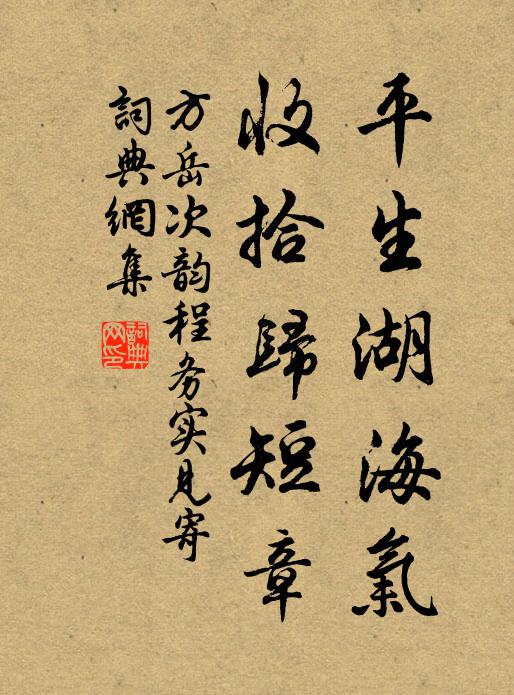 平生湖海氣
收拾歸短章
方岳次韵程务实見寄
詞典網集
詞典网印